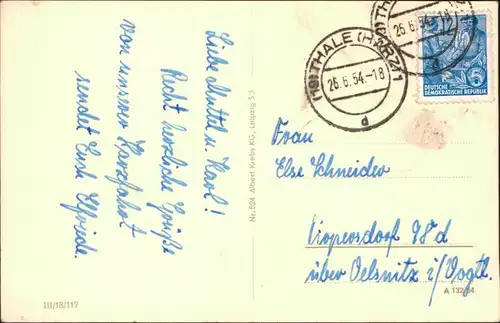 Liebe Muttel u. Karol!
Recht herzliche Grüße
von unserer Harzfahrt
sendet Euch Elfriede.
III/18/117
Nr. 624 Albert Krebs KG., Leipzig S 3
(19) THALE (HARZ) 1
26.6.54.-18
d
(19) THALE
26.6.54.-18
d
DEUTSCHE
DEMOKRATISCHE REPUBLIK
Frau
Else Schneider
98d
über Oelsnitz i/Vogtl.
A 132/54